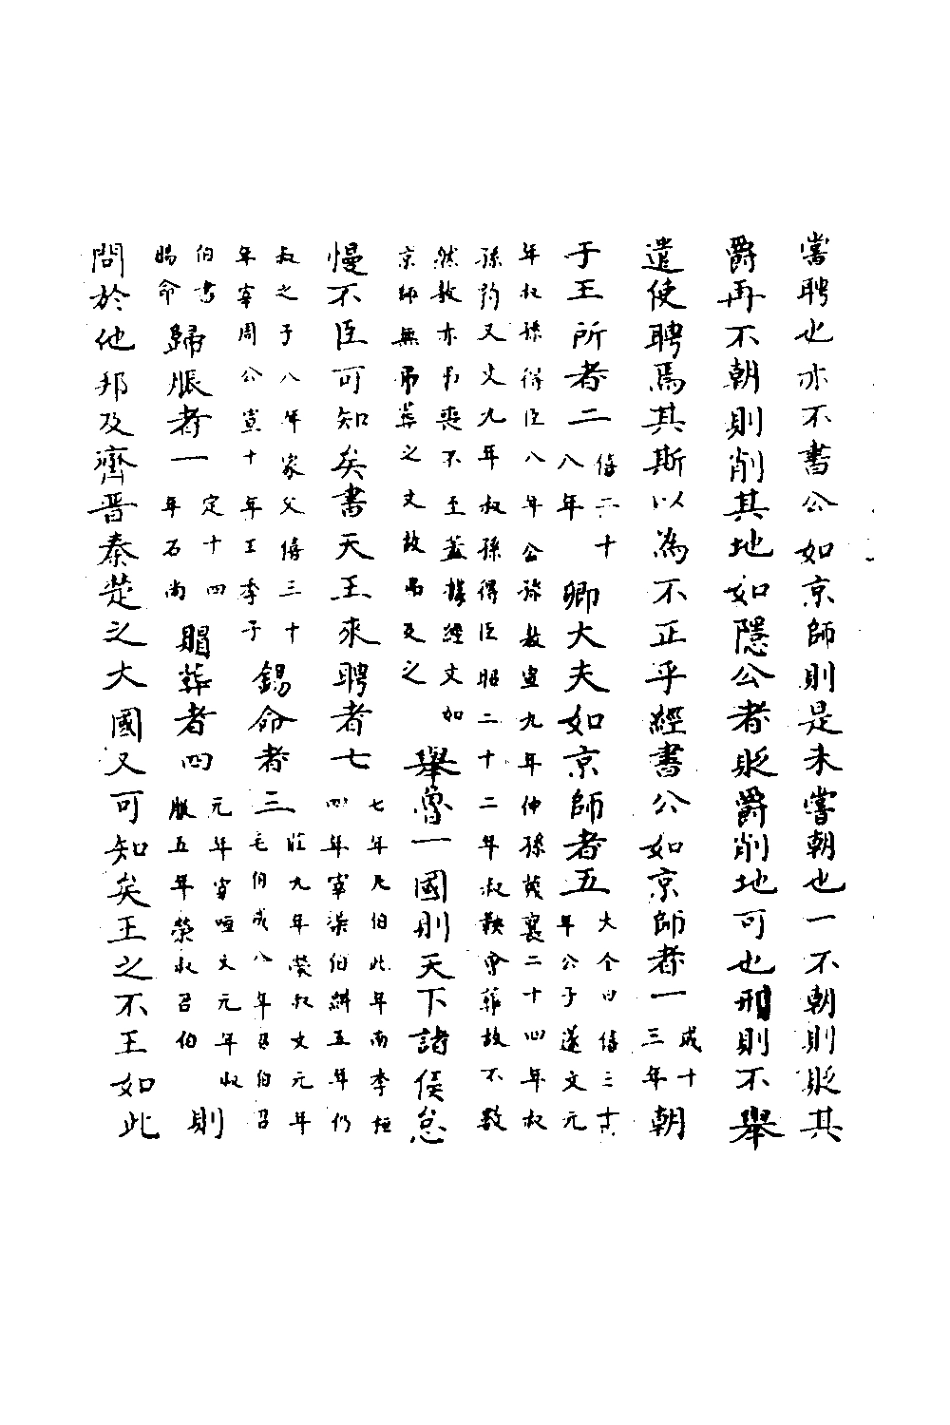 嘗聘也亦不書公如京師則是未嘗朝也一不朝則貶其
爵再不朝則削其地如隱公者貶爵削地可也刑則不舉
遣使聘焉其斯以為不正乎經書公如京師者一成十三年朝
于王所者二僖二十八年卿大夫如京師者五大全曰僖三十年公子遂文元
年叔孫得臣八年公孫敖宣九年仲孫蔑襄二十四年叔孫豹又文九年叔孫得臣昭二十二年叔鞅會葬故不數
然敖亦弔喪不至蓋據經文如京師無弔葬之文故弔及之舉魯一國則天下諸侯怠
慢不臣可知矣書天王來聘者七七年凡伯此年南季桓四年宰渠伯糾五年仍
叔之子八年家父僖三十年宰周公宣十年王季子錫命者三莊九年榮叔文元年毛伯成八年召伯召
伯書賜命歸脤者一定十四年石尚賵葬者四元年宰咺文元年叔服五年榮叔召伯則
問於他邦及齊晉秦楚之大國又可知矣王之不王如此